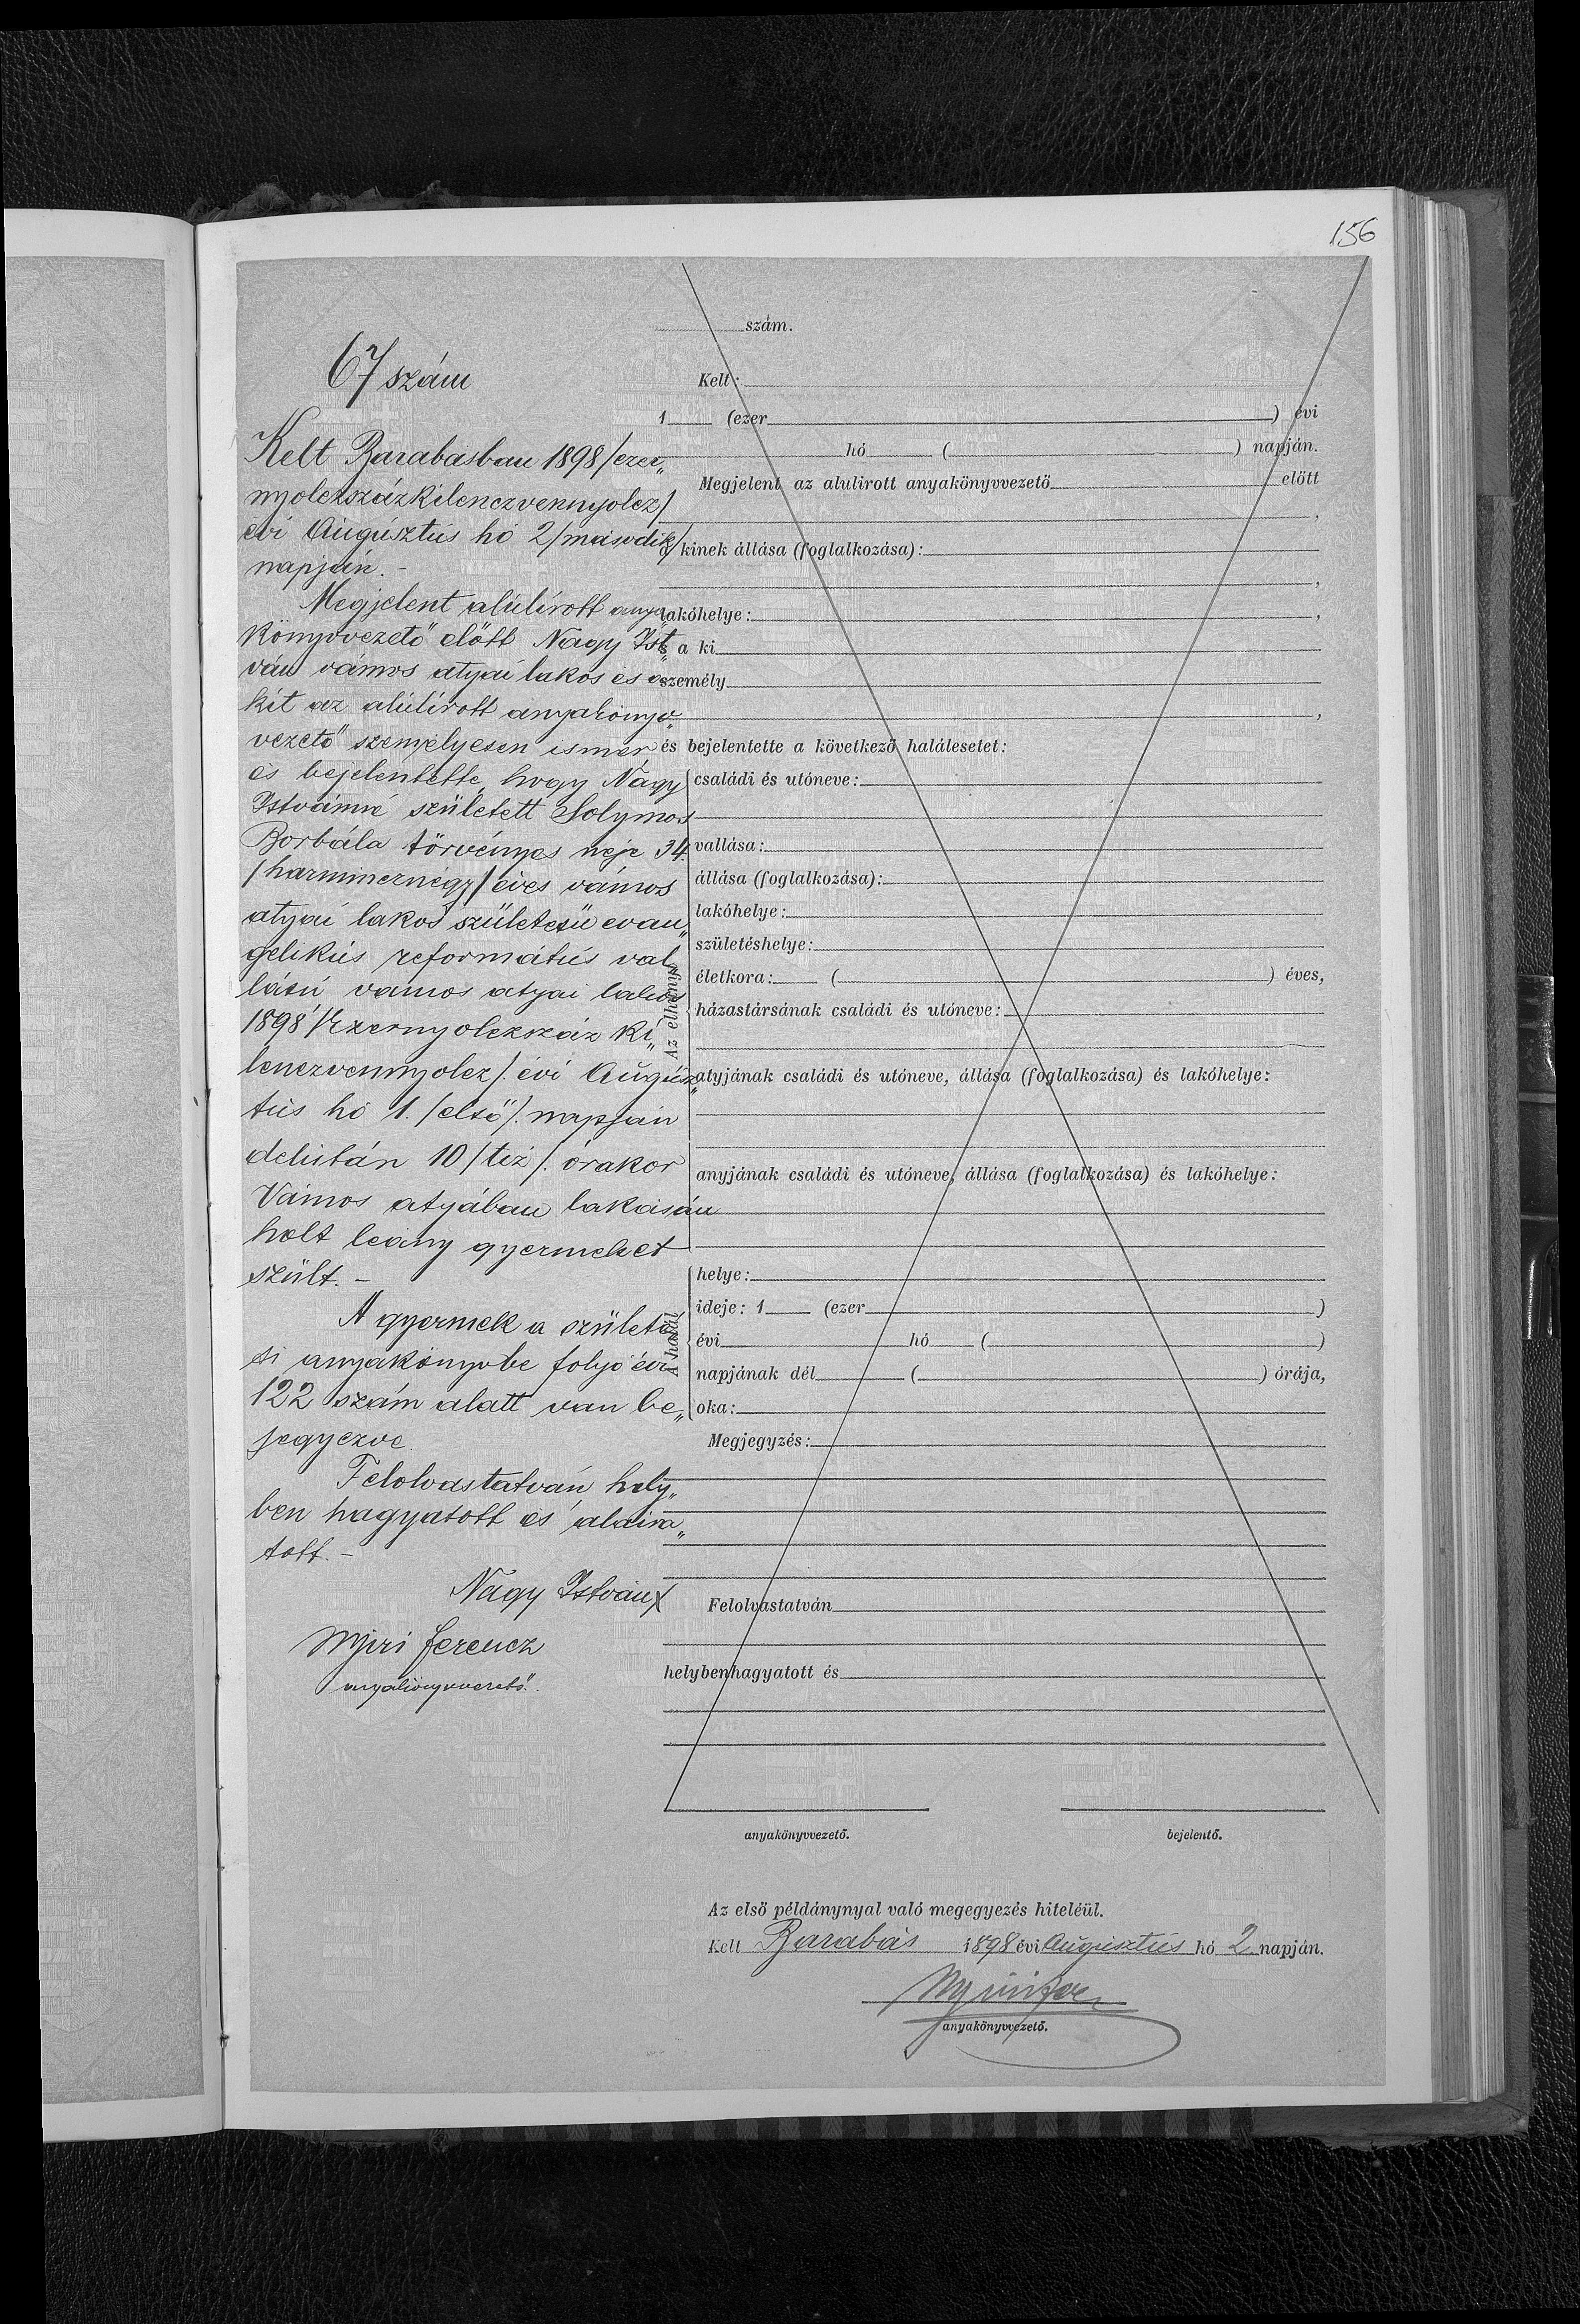 156
67 szám
Kelt Barabásban 1898 /ezer„
nyolczszázkilenczvennyolcz/
évi Augúsztús hó 2 /második/
napján. -
Megjelent alúlírott anya„
könyvvezető előtt Nagy Ist„
ván vámos atyai lakos és a
kit az alúlírott anyakönyv„
vezető személyesen ismer
és bejelentette, hogy Nagy
Istvánné született Solymos
Borbála törvényes neje 34.
/harmincznégy/ éves vámos
atyai lakos születésü evan„
gelikús reformátús val„
lású vámos atyai lakos
1898 /ezernyolczszáz ki„
lenczvennyolcz/. évi Augúsz„
tús hó 1. /első/. napján
délután 10 /tiz/. órakor
Vámos atyában lakásán
holt leány gyermeket
szült. -
A gyermek a születé
si anyakönyvbe folyó évi
122 szám alatt van be„
jegyezve.
Felolvastatván hely„
ben hagyatott és aláira„
tott. -
Nagy István
Nyiri Ferencz
anyakönyvvezető.
szám.
Kelt:
1 (ezer ) évi
hó ( ) napján.
Megjelent az alulirott anyakönyvvezető előtt
,
a kinek állása (foglalkozása):
,
lakóhelye: ,
a ki
személy
,
és bejelentette a következő halálesetet:
Az elhunyt
családi és utóneve:
vallása:
állása (foglalkozása):
lakóhelye:
születéshelye:
életkora: ( ) éves,
házastársának családi és utóneve:
atyjának családi és utóneve, állása (foglalkozása) és lakóhelye:
anyjának családi és utóneve, állása (foglalkozása) és lakóhelye:
A halál
helye:
ideje: 1 (ezer )
évi hó ( )
napjának dél ( ) órája,
oka:
Megjegyzés:
Felolvastatván
helybenhagyatott és
anyakönyvvezető. bejelentő.
Az első példánynyal való megegyezés hiteléül.
Kelt Barabás 1898 évi Augúsztús hó 2 napján.
anyakönyvvezető.